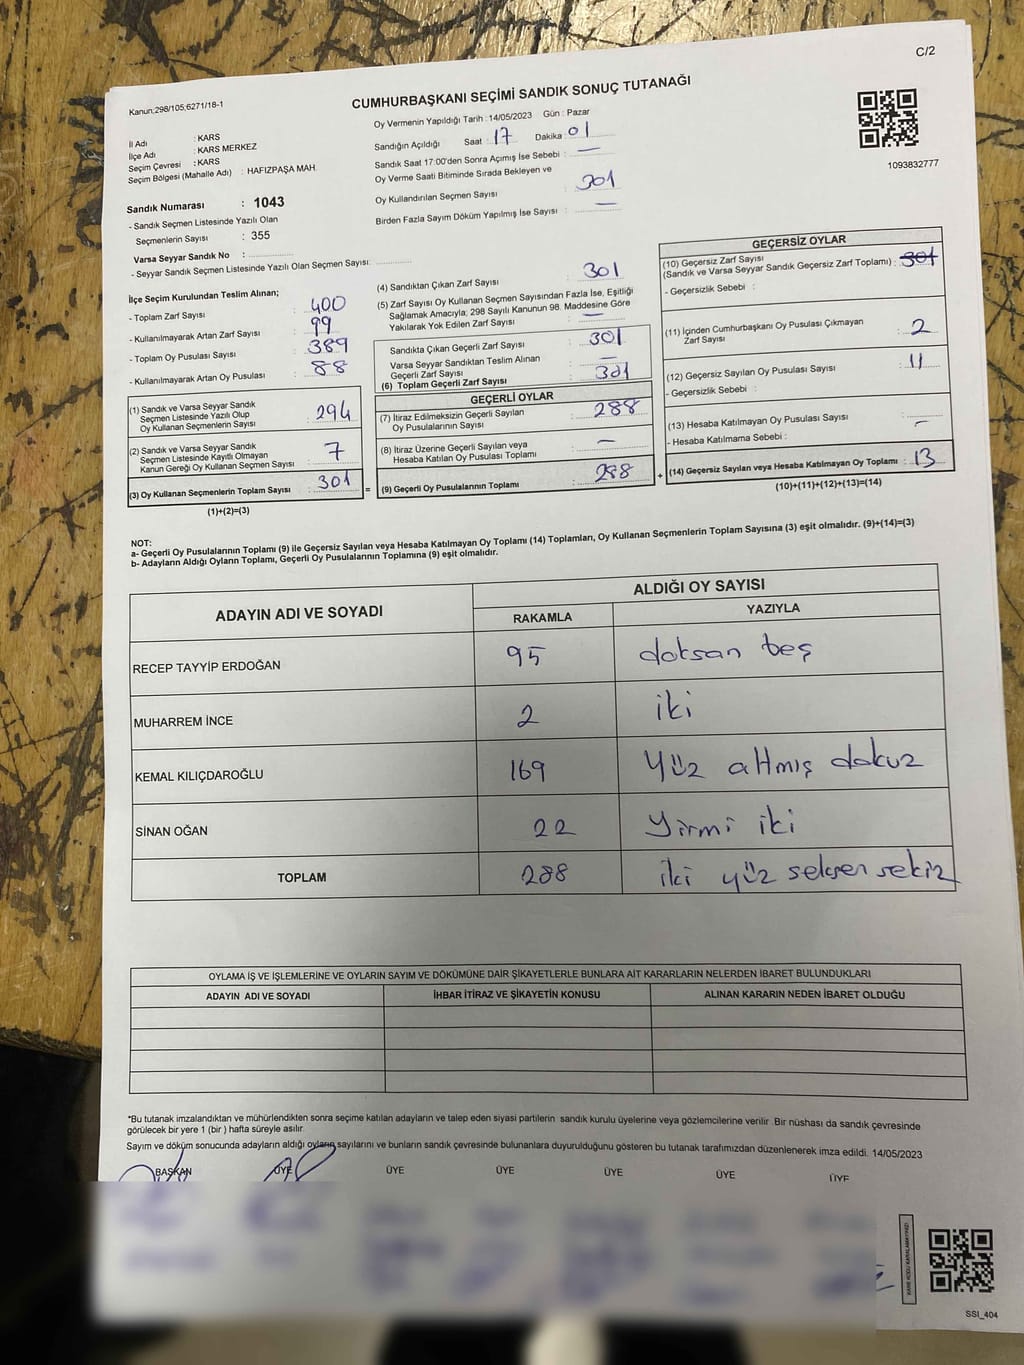 C/2
Kanun;298/105;6271/18-1
CUMHURBAŞKANI SEÇİMİ SANDIK SONUÇ TUTANAĞI
İl Adı : KARS
İlçe Adı : KARS MERKEZ
Seçim Çevresi : KARS
Seçim Bölgesi (Mahalle Adı) : HAFIZPAŞA MAH.
Sandık Numarası : 1043
- Sandık Seçmen Listesinde Yazılı Olan
Seçmenlerin Sayısı : 355
Varsa Seyyar Sandık No :
- Seyyar Sandık Seçmen Listesinde Yazılı Olan Seçmen Sayısı:
Oy Vermenin Yapıldığı Tarih : 14/05/2023 Gün : Pazar
Sandığın Açıldığı Saat : 17 Dakika 01
Sandık Saat 17:00'den Sonra Açımış İse Sebebi : —
Oy Verme Saati Bitiminde Sırada Bekleyen ve
Oy Kullandırılan Seçmen Sayısı : 301
Birden Fazla Sayım Döküm Yapılmış İse Sayısı : —
1093832777
İlçe Seçim Kurulundan Teslim Alınan;
- Toplam Zarf Sayısı : 400
- Kullanılmayarak Artan Zarf Sayısı : 99
- Toplam Oy Pusulası Sayısı : 389
- Kullanılmayarak Artan Oy Pusulası : 88
(1) Sandık ve Varsa Seyyar Sandık
Seçmen Listesinde Yazılı Olup
Oy Kullanan Seçmenlerin Sayısı : 294
(2) Sandık ve Varsa Seyyar Sandık
Seçmen Listesinde Kayıtlı Olmayan
Kanun Gereği Oy Kullanan Seçmen Sayısı : 7
(3) Oy Kullanan Seçmenlerin Toplam Sayısı : 301
(1)+(2)=(3)
=
(4) Sandıktan Çıkan Zarf Sayısı : 301
(5) Zarf Sayısı Oy Kullanan Seçmen Sayısından Fazla İse, Eşitliği
Sağlamak Amacıyla; 298 Sayılı Kanunun 98. Maddesine Göre
Yakılarak Yok Edilen Zarf Sayısı : —
Sandıkta Çıkan Geçerli Zarf Sayısı : 301
Varsa Seyyar Sandıktan Teslim Alınan
Geçerli Zarf Sayısı : —
(6) Toplam Geçerli Zarf Sayısı : 301
GEÇERLİ OYLAR
(7) İtiraz Edilmeksizin Geçerli Sayılan
Oy Pusulalarının Sayısı : 288
(8) İtiraz Üzerine Geçerli Sayılan veya
Hesaba Katılan Oy Pusulası Toplamı : —
(9) Geçerli Oy Pusulalarının Toplamı : 288
+
GEÇERSİZ OYLAR
(10) Geçersiz Zarf Sayısı
(Sandık ve Varsa Seyyar Sandık Geçersiz Zarf Toplamı) : 301
- Geçersizlik Sebebi :
(11) İçinden Cumhurbaşkanı Oy Pusulası Çıkmayan
Zarf Sayısı : 2
(12) Geçersiz Sayılan Oy Pusulası Sayısı : 11
- Geçersizlik Sebebi :
(13) Hesaba Katılmayan Oy Pusulası Sayısı : —
- Hesaba Katılmama Sebebi :
(14) Geçersiz Sayılan veya Hesaba Katılmayan Oy Toplamı : 13
(10)+(11)+(12)+(13)=(14)
NOT:
a- Geçerli Oy Pusulalarının Toplamı (9) ile Geçersiz Sayılan veya Hesaba Katılmayan Oy Toplamı (14) Toplamları, Oy Kullanan Seçmenlerin Toplam Sayısına (3) eşit olmalıdır. (9)+(14)=(3)
b- Adayların Aldığı Oyların Toplamı, Geçerli Oy Pusulalarının Toplamına (9) eşit olmalıdır.
ADAYIN ADI VE SOYADI
ALDIĞI OY SAYISI
RAKAMLA YAZIYLA
RECEP TAYYİP ERDOĞAN 95 doksan beş
MUHARREM İNCE 2 iki
KEMAL KILIÇDAROĞLU 169 yüz altmış dokuz
SİNAN OĞAN 22 yirmi iki
TOPLAM 288 iki yüz seksen sekiz
OYLAMA İŞ VE İŞLEMLERİNE VE OYLARIN SAYIM VE DÖKÜMÜNE DAİR ŞİKAYETLERLE BUNLARA AİT KARARLARIN NELERDEN İBARET BULUNDUKLARI
ADAYIN ADI VE SOYADI İHBAR İTİRAZ VE ŞİKAYETİN KONUSU ALINAN KARARIN NEDEN İBARET OLDUĞU
*Bu tutanak imzalandıktan ve mühürlendikten sonra seçime katılan adayların ve talep eden siyasi partilerin sandık kurulu üyelerine veya gözlemcilerine verilir. Bir nüshası da sandık çevresinde
görülecek bir yere 1 (bir ) hafta süreyle asılır.
Sayım ve döküm sonucunda adayların aldığı oyların sayılarını ve bunların sandık çevresinde bulunanlara duyurulduğunu gösteren bu tutanak tarafımızdan düzenlenerek imza edildi. 14/05/2023
BAŞKAN ÜYE ÜYE ÜYE ÜYE ÜYE ÜYE
KARE KODU KARALAMAYINIZ!
SSI_404